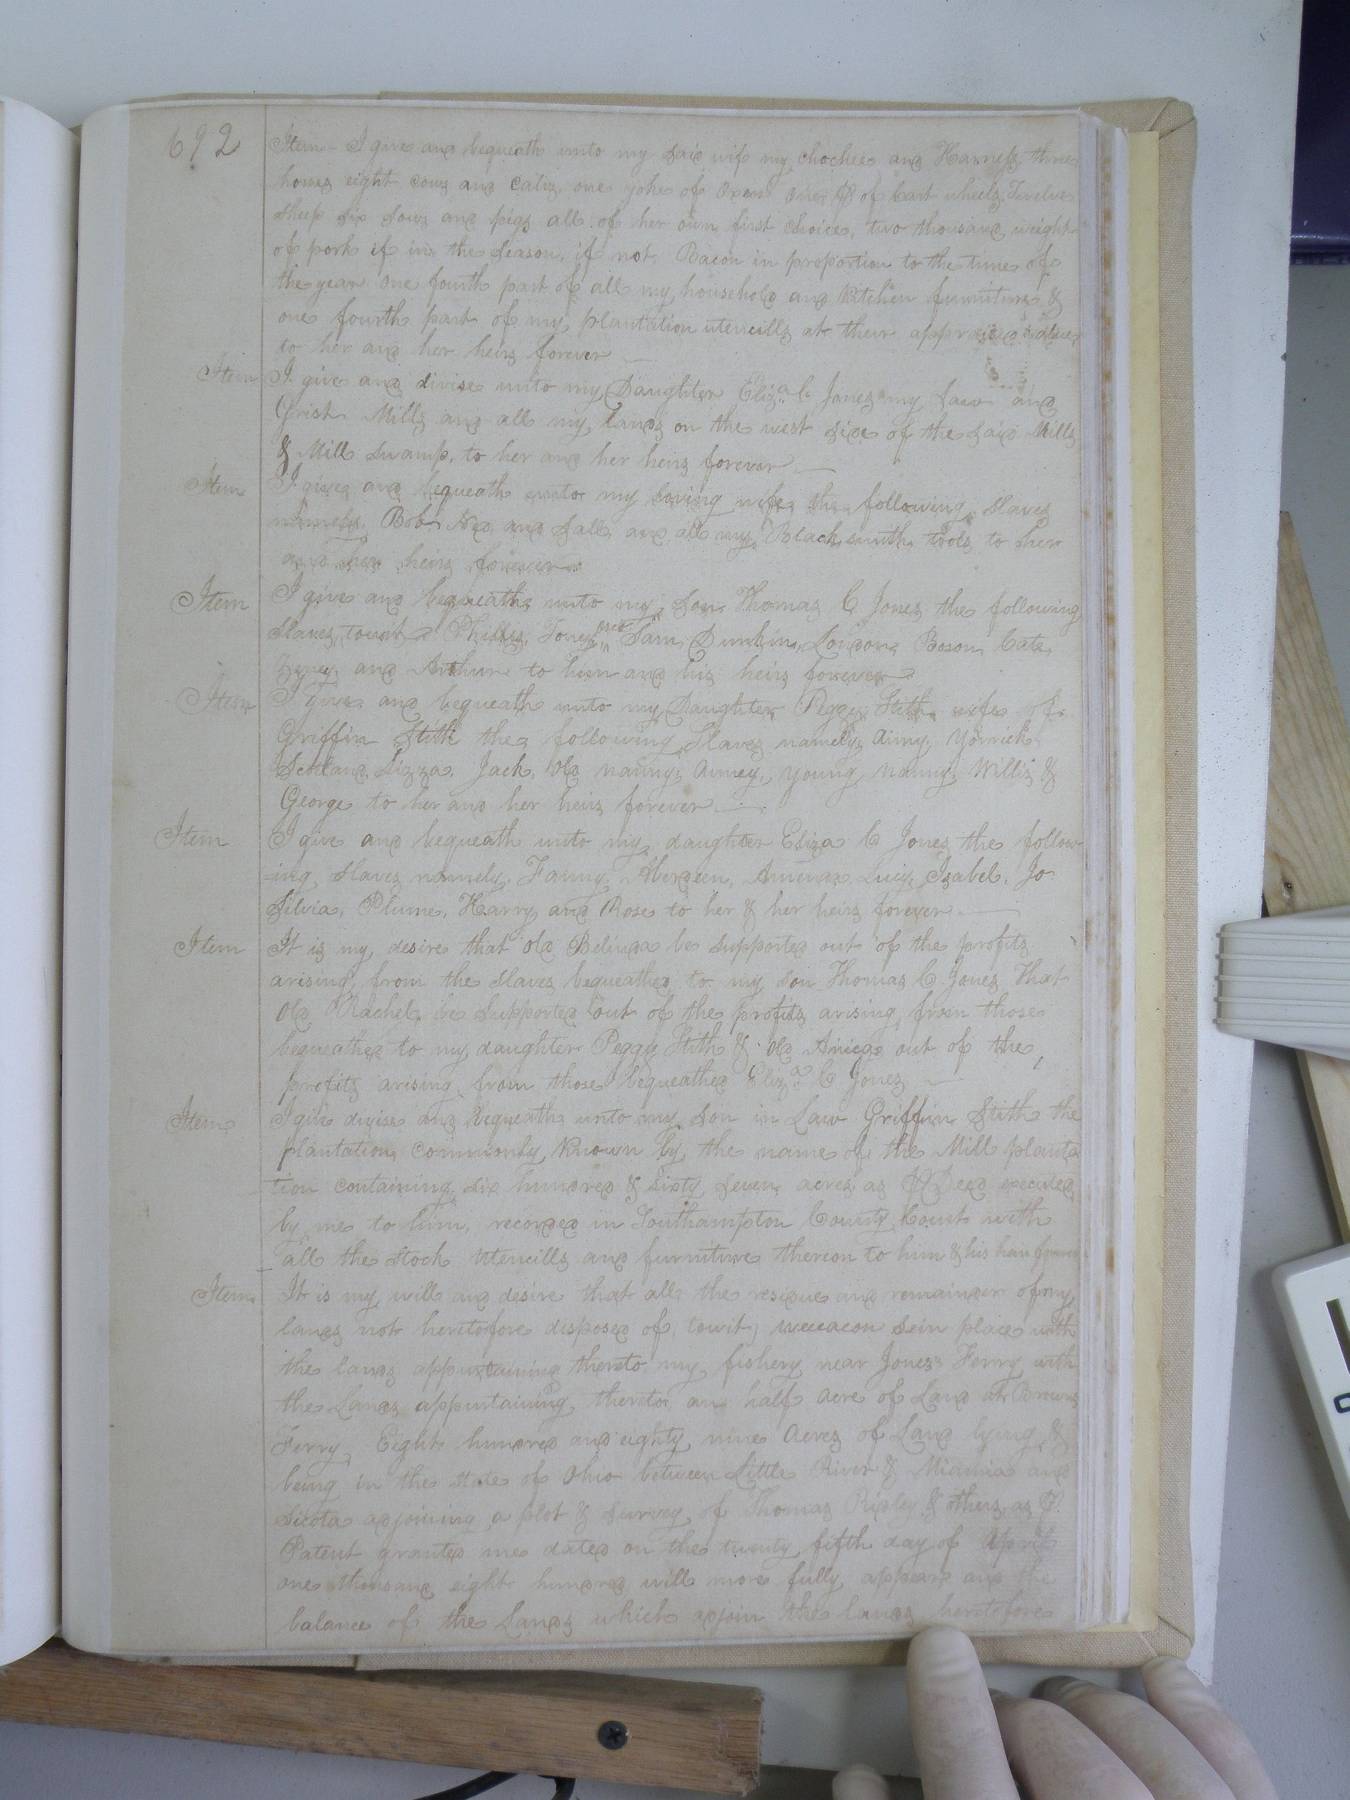 692
Item - I give and bequeath unto my said wife my chochee and Harness three
horses eight cows and calvs. one yoke of Oxen one pr of Cart wheels Twelve
sheep six sows and pigs all of her own first Choice, two thousand weight
of pork if in the season, if not Bacon in proportion to the time of
the year one fourth part of all my household and Kitchin furniture &
one fourth part of my plantation utencills at their appraised value
to her and her heirs forever
Item I give and divise unto my Daughter Eliza. C Jones my saw and
Grist Mills and all my lands on the west side of the said Mills
& Mill Swamp, to her and her heirs forever
Item I give and bequeath unto my loving wife the following slaves
namely, Bob and all my Black smith tools to her
and her heirs forever
Item I give and bequeath unto my son Thomas C Jones the following
slaves, towit Phillis, Toney, Sam, Dunkin, London, Boson, Cate,
and Arthur to him and his heirs forever
Item I give and bequeath unto my Daughter Peggy Stith wife of
Griffin Stith the following Slaves namely, Yorrick
Scotland, Lizza, Jack, old nanny, young nanny, Willis &
George to her and her heirs forever
Item I give and bequeath unto my daughter Eliza C Jones the follow
-ing slaves namely, Fanny, Aberdeen, Lucy, Isabel, Jo
Silvia, Plume, Harry and Rose to her & her heirs forever
Item It is my desire that old Belinda be supported out of the profits
arising from the slaves bequeathed to my son Thomas C Jones That
old Rachel be supported out of the profits arising from those
bequeathed to my daughter Peggy Stith & old out of the
profits arising from those bequeathed Eliza C Jones
Item I give divise and bequeath unto my son in Law Griffin Stith the
plantation commonly known by the name of the Mill planta
tion containing six hundred & sixty seven acres as pr Deed executed
by me to him, recorded in Southampton County Court with
all the stock utencills and furniture thereon to him & his heirs forever
Item It is my will and desire that all the residue and remainder of my
lands not heretofore disposed of, towit, sein place with
the lands appurtaining thereto my fishery near Jones's Ferry with
the Lands appurtaining thereto, an half acre of Land at
Ferry Eight hundred and eighty nine Acres of Land lying &
being in the state of Ohio between Little River & and
Sicota adjoining a plot & survey of Thomas Ripley & others as pr
Patent granted me dated on the twenty fifth day of April
one thousand eight hundred will more fully appear and the
balance of the Lands which adjoin the lands heretofore